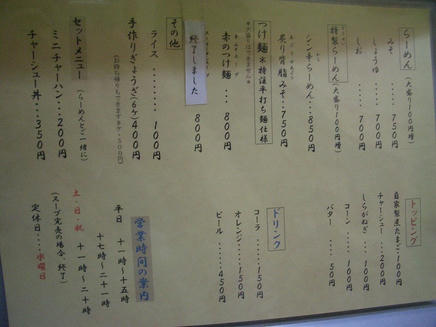 らーめん (大盛り100円増)
みそ・・・・750円
しょうゆ・・・700円
しお・・・・700円
特製らーめん (大盛り100円増)
シンチらーめん・・850円
炙り背脂みそ・・750円
つけ麺 ※特注平打ち麺仕様
赤のつけ麺・・・800円
終了しました 800円
その他
ライス・・・・100円
手作りぎょうざ(6ヶ)400円
(お持ち帰りもできます8ヶ・500円)
セットメニュー (らーめんとご一緒に)
ミニチャーハン・・200円
チャーシュー丼・・350円
トッピング
自家製煮たまご・100円
チャーシュー・・200円
しらがねぎ・・・100円
コーン・・・・100円
バター・・・・50円
ドリンク
コーラ・・・150円
オレンジ・・・150円
ビール・・・450円
営業時間の案内
平日 十一時〜十五時
十七時〜二十一時
土・日・祝 十一時〜二十時
(スープ完売の場合、終了)
定休日・・・・水曜日